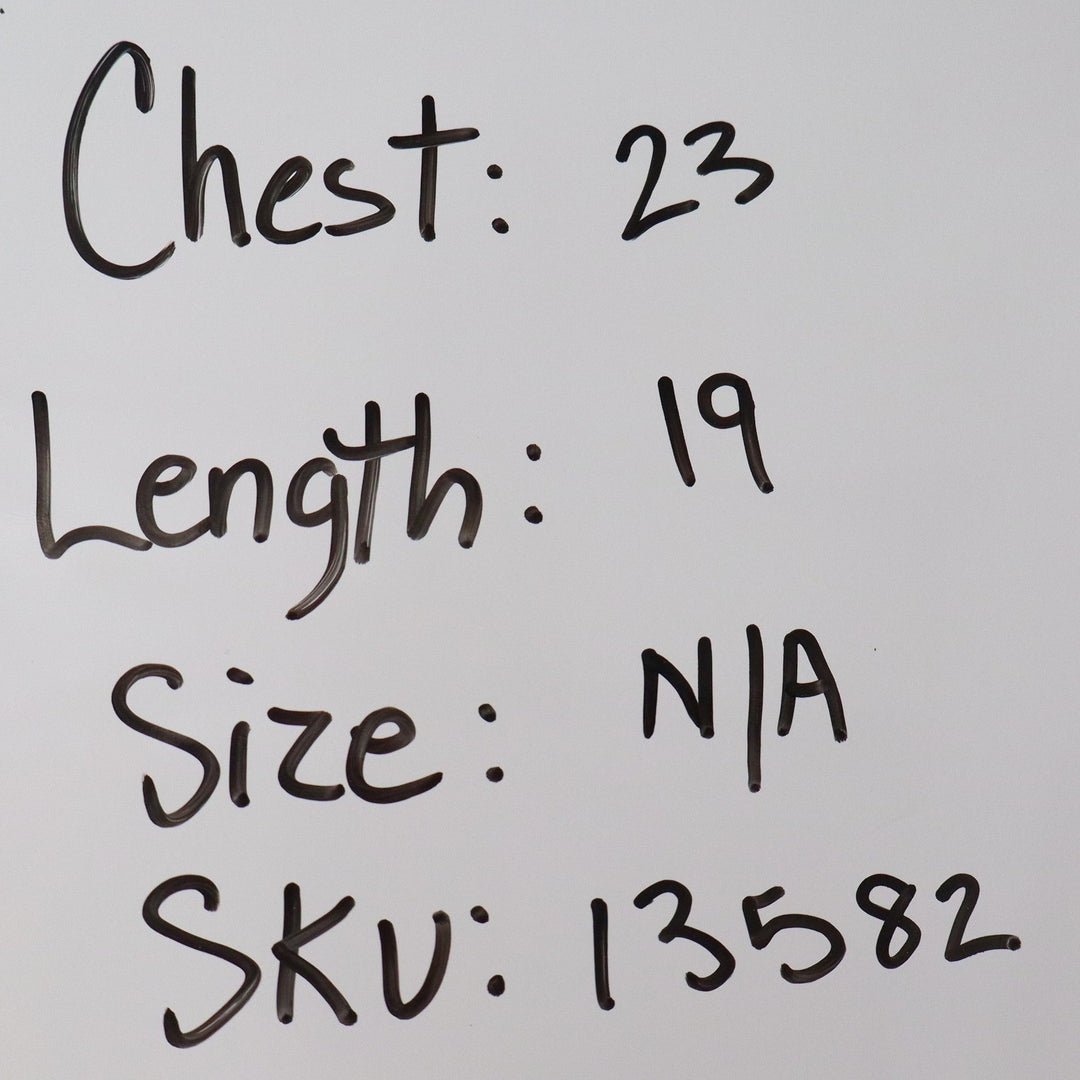 Chest: 23
Length: 19
Size: N/A
SKU: 13582